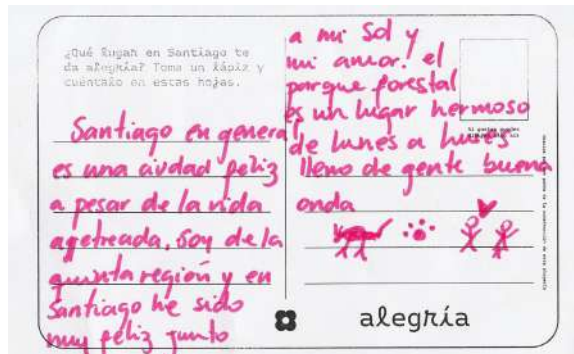 ¿Qué lugar en Santiago te
da alegría? Toma un lápiz y
cuéntalo en estas hojas.
Santiago en general
es una ciudad feliz
a pesar de la vida
agetreada, soy de la
quinta región y en
Santiago he sido
muy feliz junto
a mi Sol y
mi amor! el
parque forestal
es un lugar hermoso
de lunes a lunes
lleno de gente buena
onda
alegría